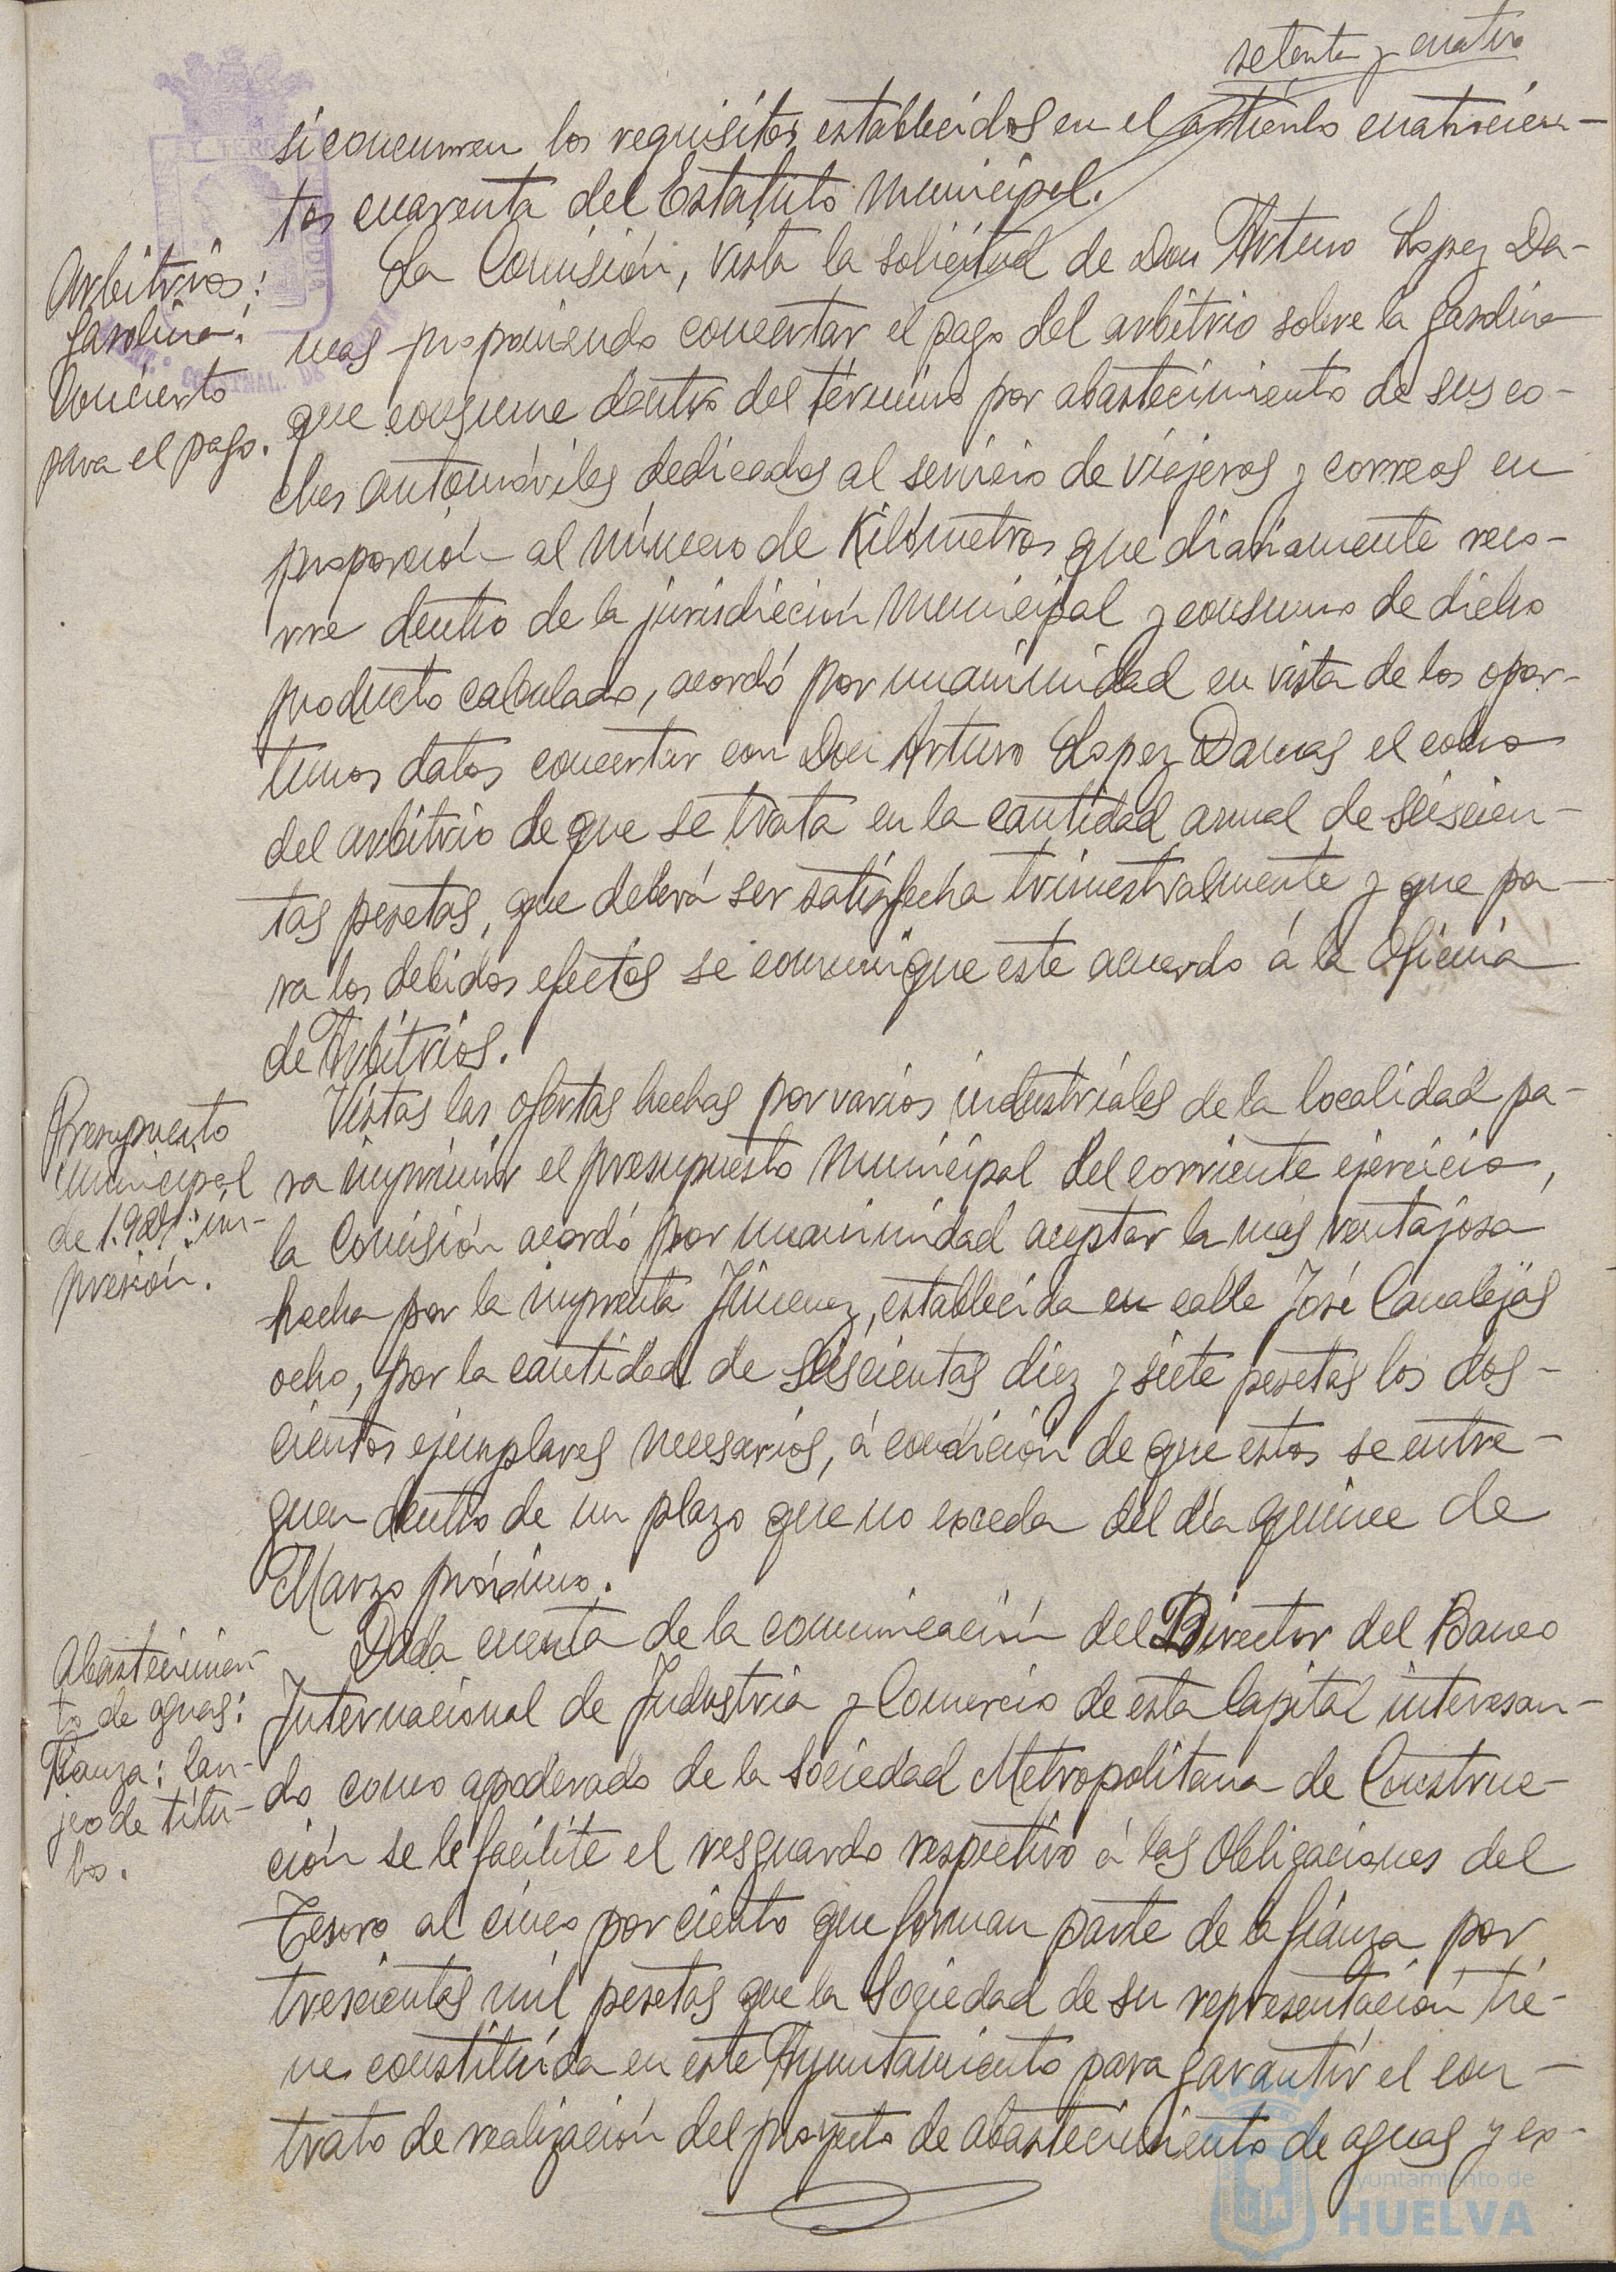 setenta y cuatro
si concurren los requisitos establecidos en el artículo cuatrocien-
tos cuarenta del Estatuto Municipal.
Arbitrios:
gasolina:
Concierto
para el pago.
La Comisión, vista la solicitud de Don Arturo Lopez Da-
mas proponiendo concertar el pago del arbitrio sobre la gasolina
que consume dentro del término por abastecimiento de sus co-
ches automóviles dedicados al servicio de viajeros y correos en
proporción al número de Kilómetros que diariamente reco-
rre dentro de la jurisdicción Municipal y consumo de dicho
producto calculado, acordó por unanimidad en vista de los opor-
tunos datos concertar con Don Arturo Lopez Damas el cobro
del arbitrio de que se trata en la cantidad anual de seiscien-
tas pesetas, que deberá ser satisfecha trimestralmente y que pa-
ra los debidos efectos se comunique este acuerdo á la Oficina
de Arbitrios.
Presupuesto
municipal
de 1.927: im-
presión.
Vistas las ofertas hechas por varios industriales de la localidad pa-
ra imprimir el presupuesto Municipal del corriente ejercicio,
la Comisión acordó por unanimidad aceptar la mas ventajosa
hecha por la imprenta Jimenez, establecida en calle José Canalejas
ocho, por la cantidad de seiscientas diez y siete pesetas los dos-
cientos ejemplares necesarios, á condición de que estos se entre-
guen dentro de un plazo que no exceda del día quince de
Marzo próximo.
Abastecimien-
to de aguas:
Fianza: Can-
jeo de títu-
los.
Dada cuenta de la comunicación del Director del Banco
Internacional de Industria y Comercio de esta Capital interesan-
do como apoderado de la Sociedad Metropolitana de Construc-
ción se le facilite el resguardo respectivo á las Obligaciones del
Tesoro al cinco por ciento que forman parte de la fianza por
trescientas mil pesetas que la Sociedad de su representación tie-
ne constituída en este Ayuntamiento para garantir el con-
trato de realización del proyecto de abastecimiento de aguas y ex-
Ayuntamiento de
HUELVA